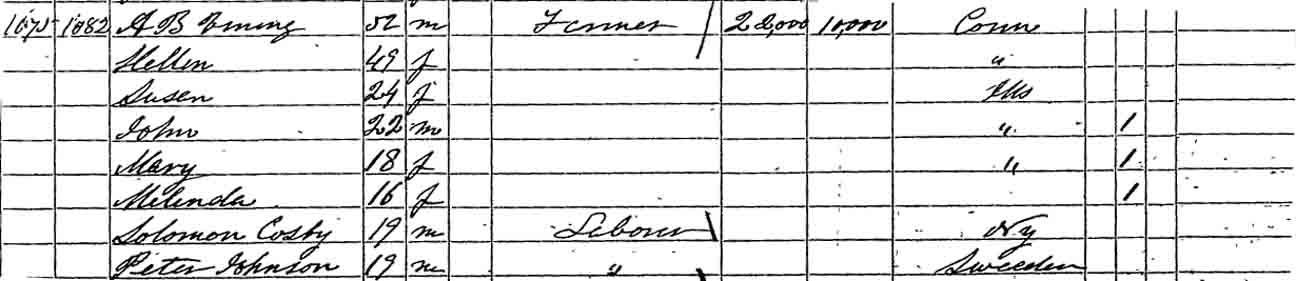 1675 1082 A B Ewing 52 m Farmer 22,000 10,000 Conn
Hellen 49 f "
Susen 24 f Ills
John 22 m " 1
Mary 18 f " 1
Melinda 16 f 1
Solomon Cosby 19 m Laborer Ny
Peter Johnson 19 m " Sweeden